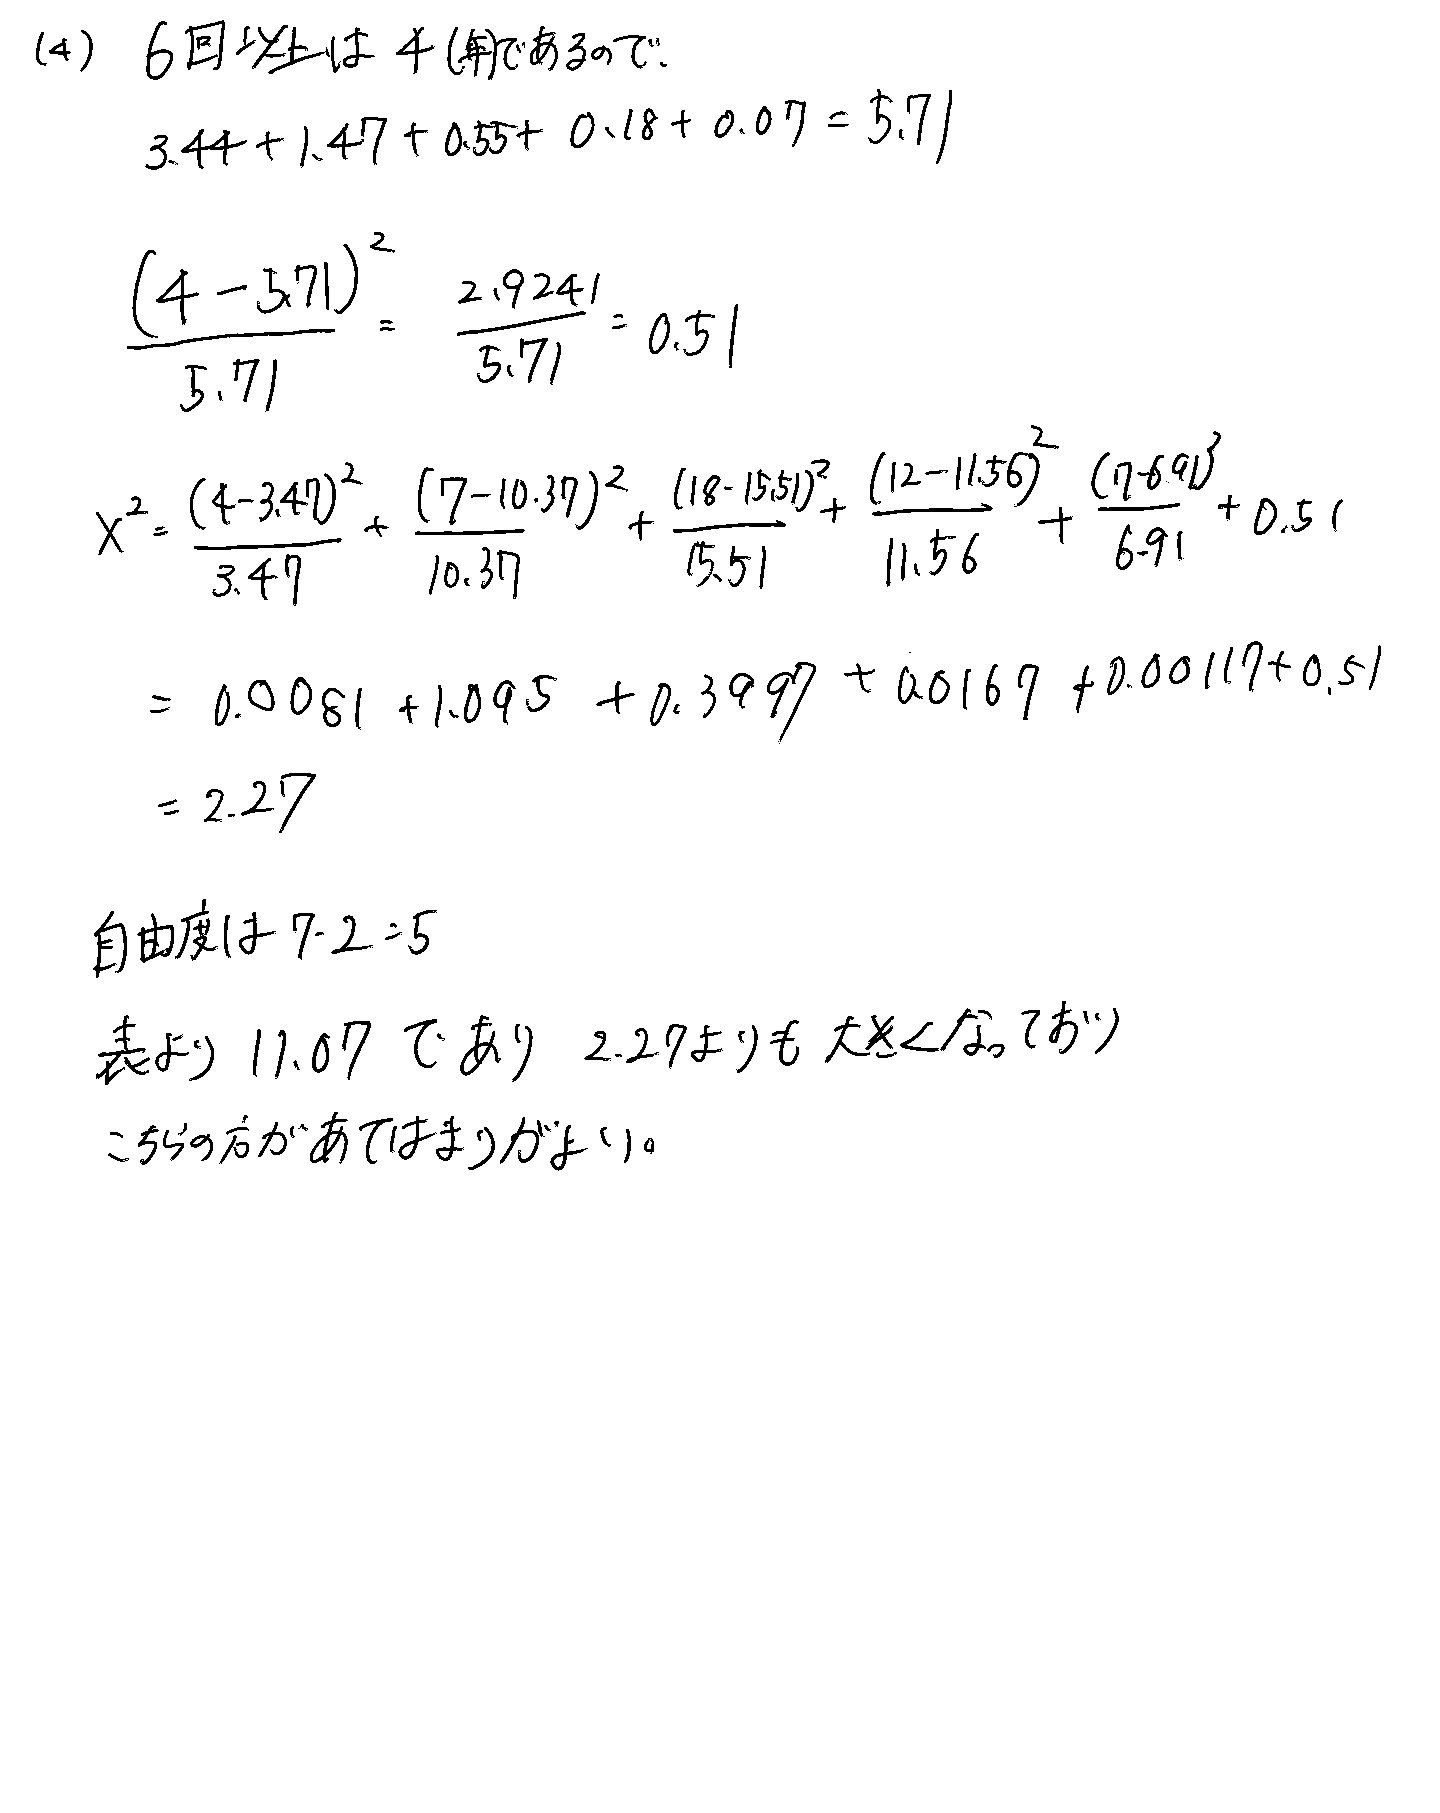 (4) 6回以上は4(年)であるので.
3.44+1.47+0.55+0.18+0.07=5.71
(4-5.71)^2/5.71 = 2.9241/5.71 = 0.51
X^2 = (4-3.47)^2/3.47 + (7-10.37)^2/10.37 + (18-15.51)^2/15.51 + (12-11.56)^2/11.56 + (7-6.91)^2/6.91 + 0.51
= 0.0081+1.095+0.3997+0.0167+0.00117+0.51
= 2.27
自由度は7-2=5
表より 11.07 であり 2.27よりも大きくなっており
こちらの方があてはまりがよい。